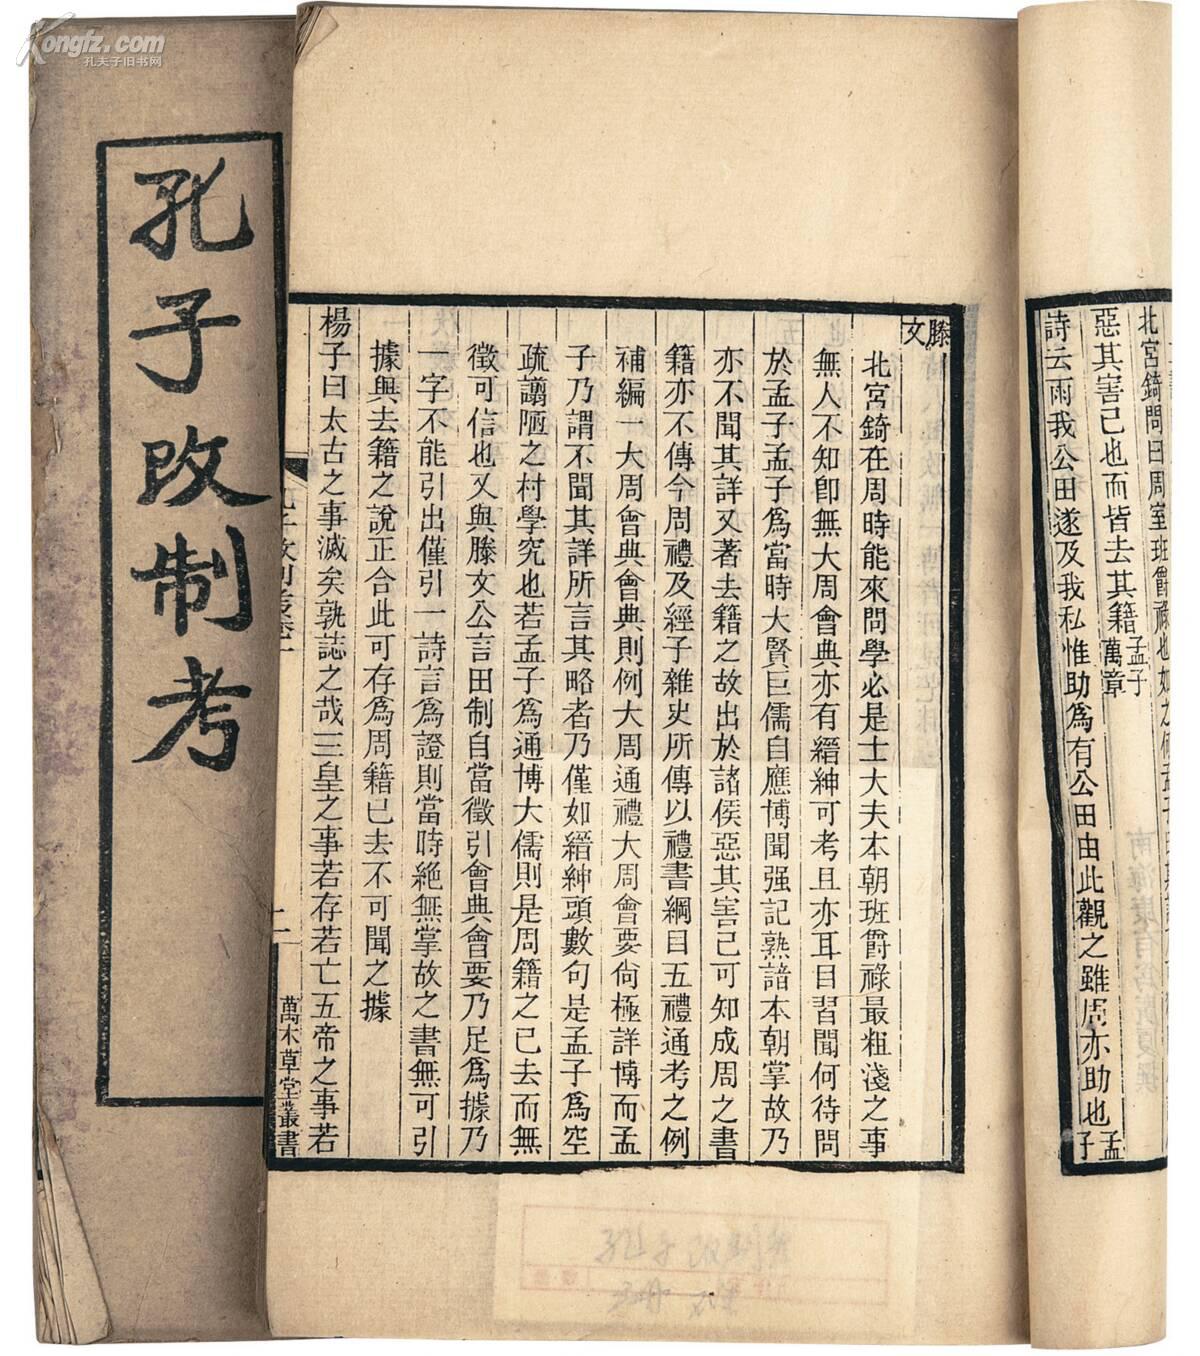 Kongfz.com
孔夫子旧书网
孔子改制考
北宮錡問曰周室班爵祿也如之何孟子曰其詳
惡其害己也而皆去其籍孟子萬章
詩云雨我公田遂及我私惟助爲有公田由此觀之雖周亦助也孟子
滕文
北宮錡在周時能來問學必是士大夫本朝班爵祿最粗淺之事
無人不知卽無大周會典亦有縉紳可考且亦耳目習聞何待問
於孟子孟子爲當時大賢巨儒自應博聞强記熟諳本朝掌故乃
亦不聞其詳又著去籍之故出於諸侯惡其害己可知成周之書
籍亦不傳今周禮及經子雜史所傳以禮書綱目五禮通考之例
補編一大周會典會典則例大周通禮大周會要尙極詳博而孟
子乃謂不聞其詳所言其略者乃僅如縉紳頭數句是孟子爲空
疏譾陋之村學究也若孟子爲通博大儒則是周籍之已去而無
徵可信也又與滕文公言田制自當徵引會典會要乃足爲據乃
一字不能引出僅引一詩言爲證則當時絶無掌故之書無可引
據與去籍之說正合此可存爲周籍已去不可聞之據
楊子曰太古之事滅矣孰誌之哉三皇之事若存若亡五帝之事若
孔子改制考卷一
二
萬木草堂叢書